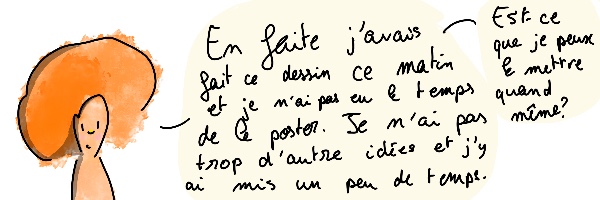 En faite j'avais
fait ce dessin ce matin
et je n'ai pas eu le temps
de le poster. Je n'ai pas
trop d'autre idées et j'y
ai mis un peu de temps.
Est-ce
que je peux
le mettre
quand
même?